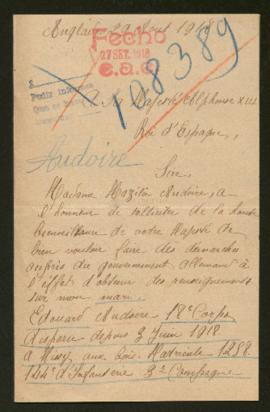 Août 1918
Fecho
27 SET. 1918
e.a.c
108389
A Sa Majesté Alphonse XIII
Roi d'Espagne,
Audoire
Sire,
Madame Audoire, a
l'honneur de solliciter de la haute
bienveillance de votre Majesté de
bien vouloir faire des démarches
auprès du gouvernement allemand à
l'effet d'obtenir des renseignements
sur mon mari.
Edouard Audoire 18e Corps
disparu depuis 3 Juin 1918
à aux Bois. Matricule 1288
144e d'Infanterie 3e Compagnie